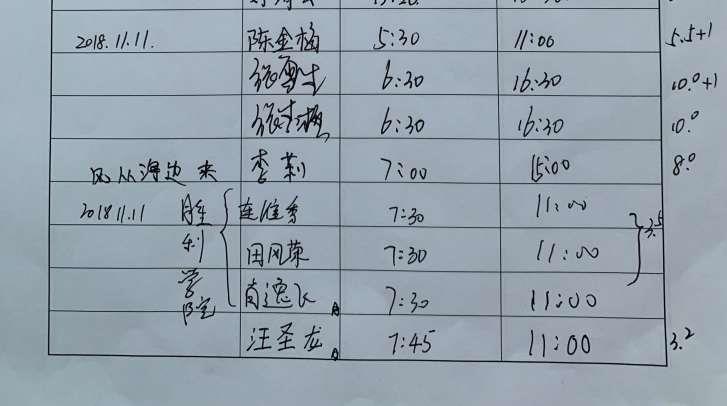 2018.11.11. 陈金梅 5:30 11:00 5.5+1
6:30 16:30 10.0+1
6:30 16:30 10.0
风从海边来 李莉 7:00 15:00 8.0
2018 11.11 胜利学院 7:30 11:00 3.5
田凤荣 7:30 11:00
7:30 11:00
汪圣龙 7:45 11:00 3.2